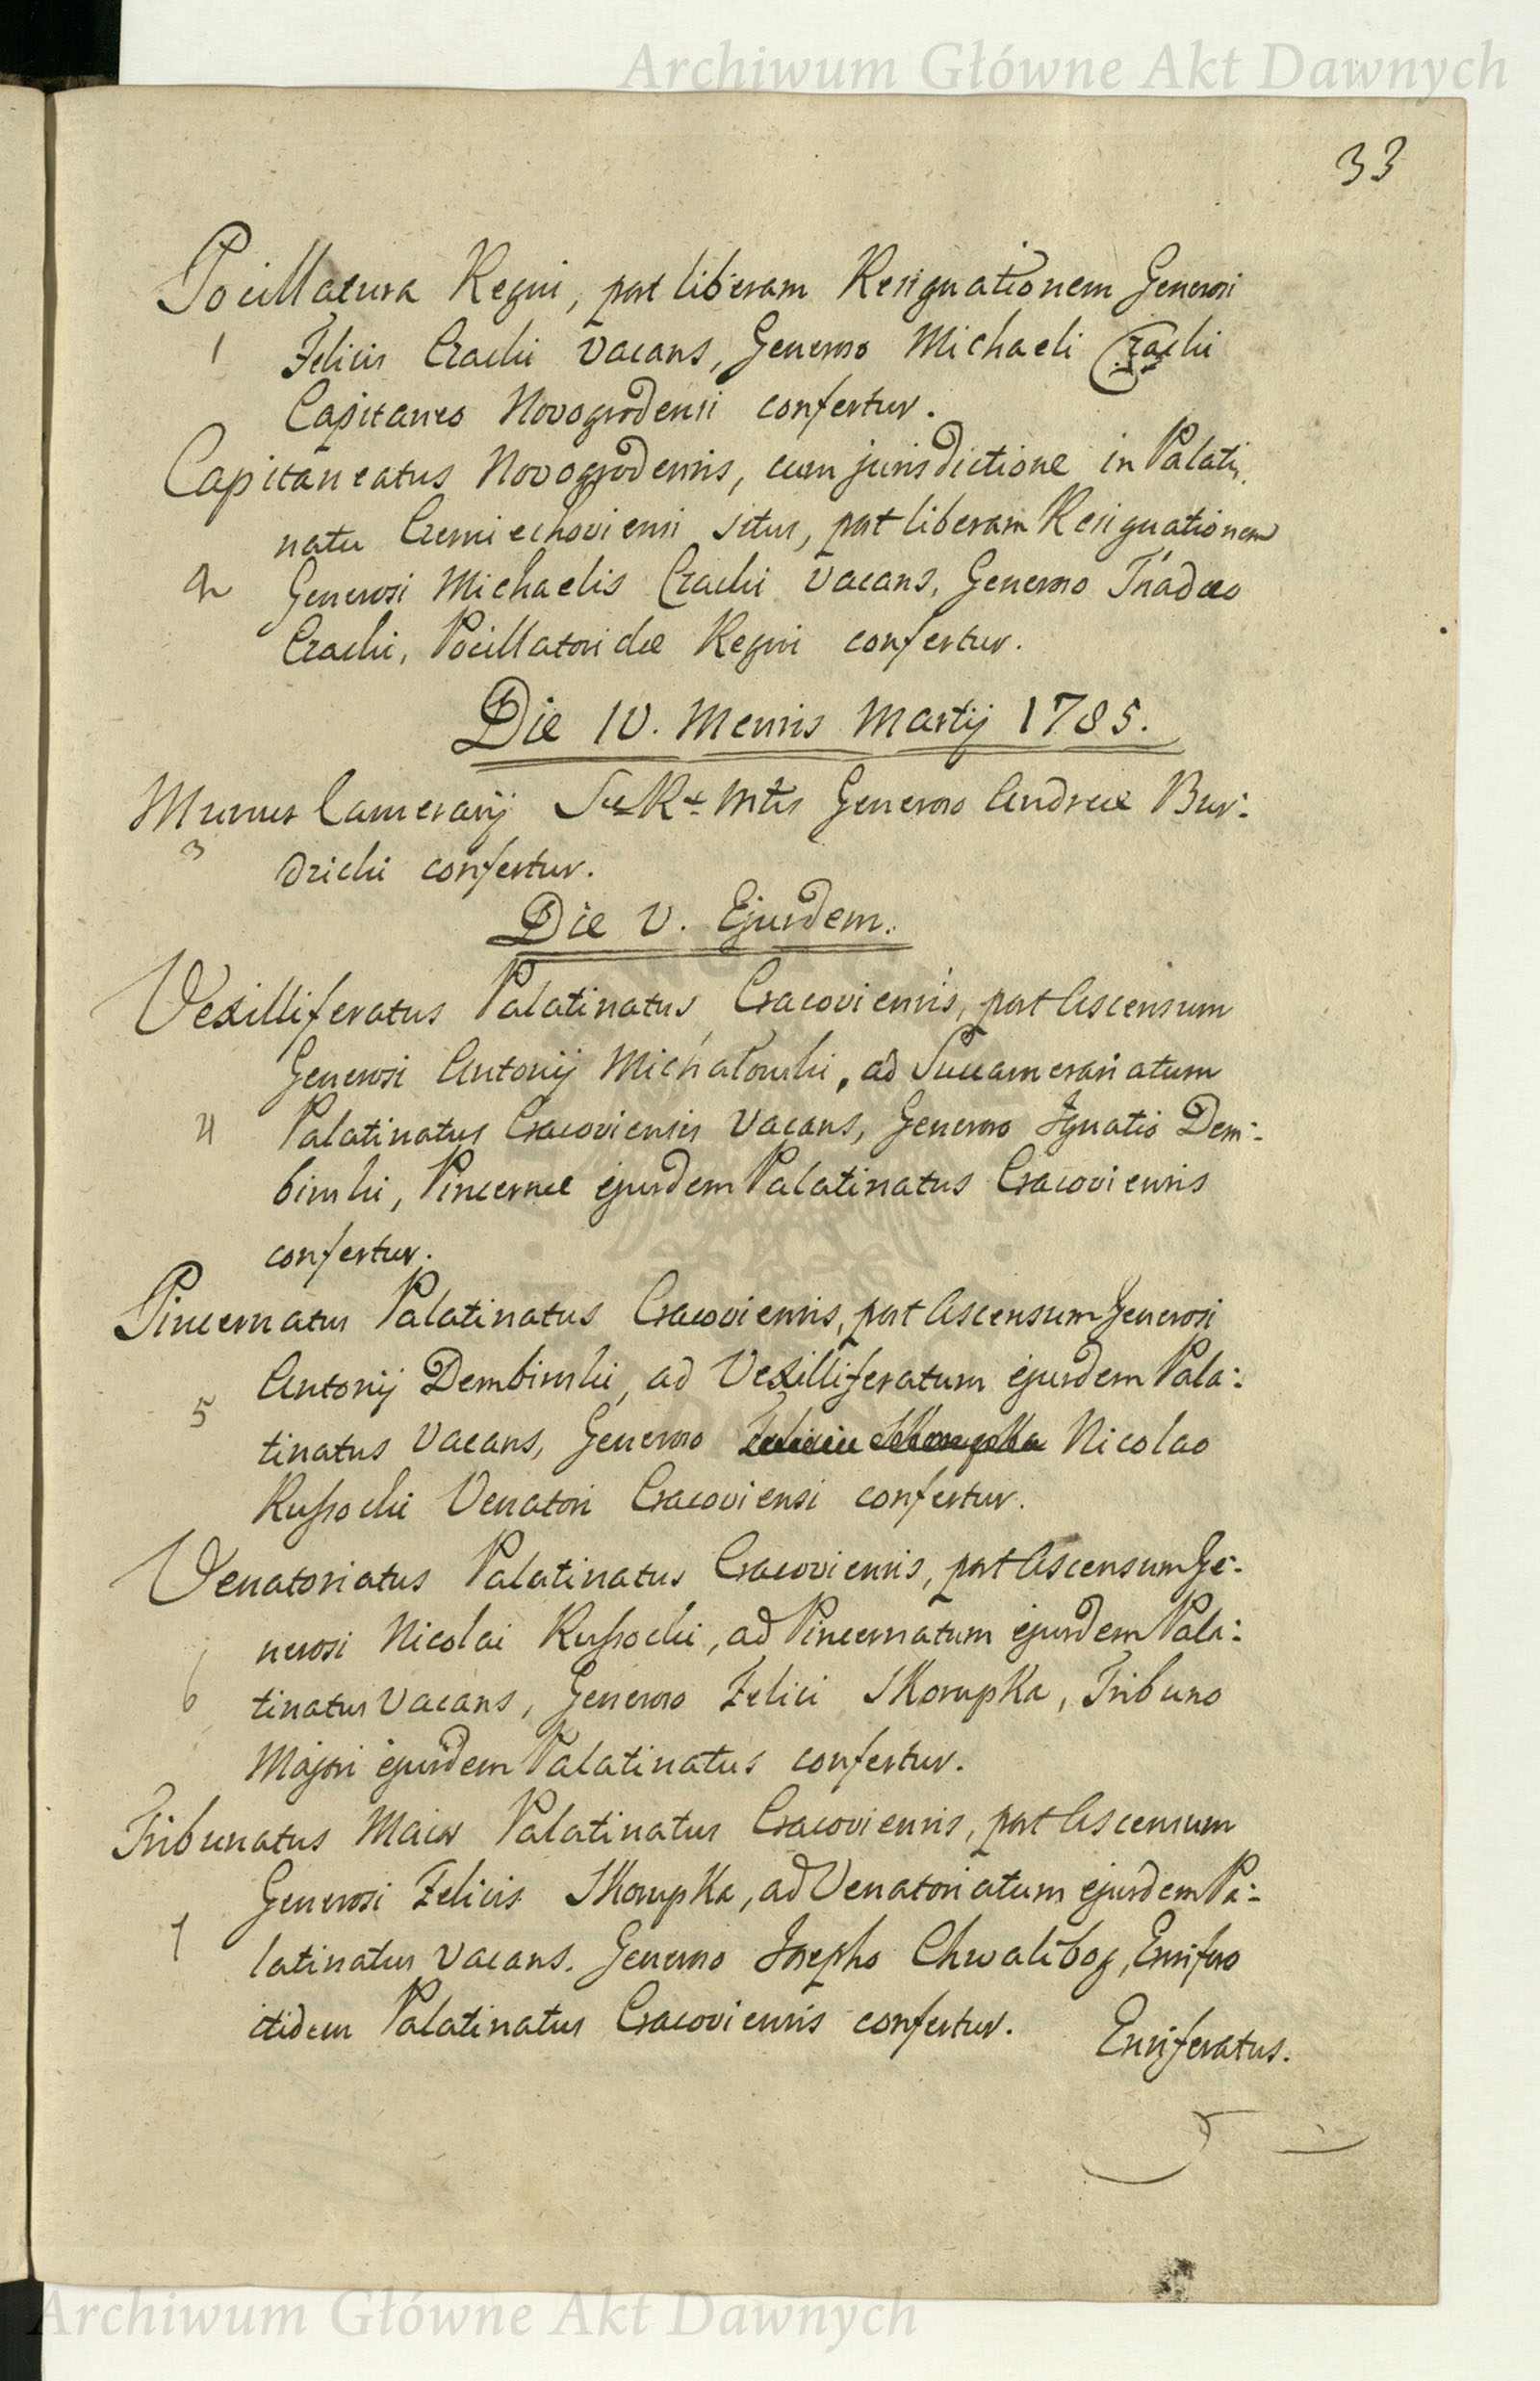 Archiwum Główne Akt Dawnych
33
Pocillatura Regni, post liberam Resignationem Generosi
1 Felicis Czacki vacans, Generoso Michaeli Czacki
Capitaneo Novogrodensi confertur.
Capitaneatus Novogrodensis, cum jurisdictione in Palati-
natu Czerniechoviensi situs, post liberam Resignationem
2 Generosi Michaelis Czacki vacans, Generoso Thadæo
Czacki, Pocillatoridæ Regni confertur.
Die IV. Mensis Martij 1785.
Munus Camerarij Sæ Ræ Mtis Generoso Andreæ Bur-
3 dzicki confertur.
Die V. Ejusdem.
Vexilliferatus Palatinatus Cracoviensis, post Ascensum
Generosi Antonij Michałowski, ad Succamerariatum
4 Palatinatus Cracoviensis vacans, Generoso Ignatio Dem-
binski, Pincernæ ejusdem Palatinatus Cracoviensis
confertur.
Pincernatus Palatinatus Cracoviensis, post Ascensum Generosi
Antonij Dembinski, ad Vexilliferatum ejusdem Pala-
5 tinatus vacans, Generoso Nicolao
Russocki Venatori Cracoviensi confertur.
Venatoriatus Palatinatus Cracoviensis, post Ascensum Ge-
nerosi Nicolai Russocki, ad Pincernatum ejusdem Pala-
6 tinatus vacans, Generoso Felici Skorupka, Tribuno
Majori ejusdem Palatinatus confertur.
Tribunatus Maior Palatinatus Cracoviensis, post Ascensum
Generosi Felicis Skorupka, ad Venatoriatum ejusdem Pa-
7 latinatus vacans. Generoso Josepho Chwalibog, Ensifero
itidem Palatinatus Cracoviensis confertur.
Ensiferatus.
Archiwum Główne Akt Dawnych